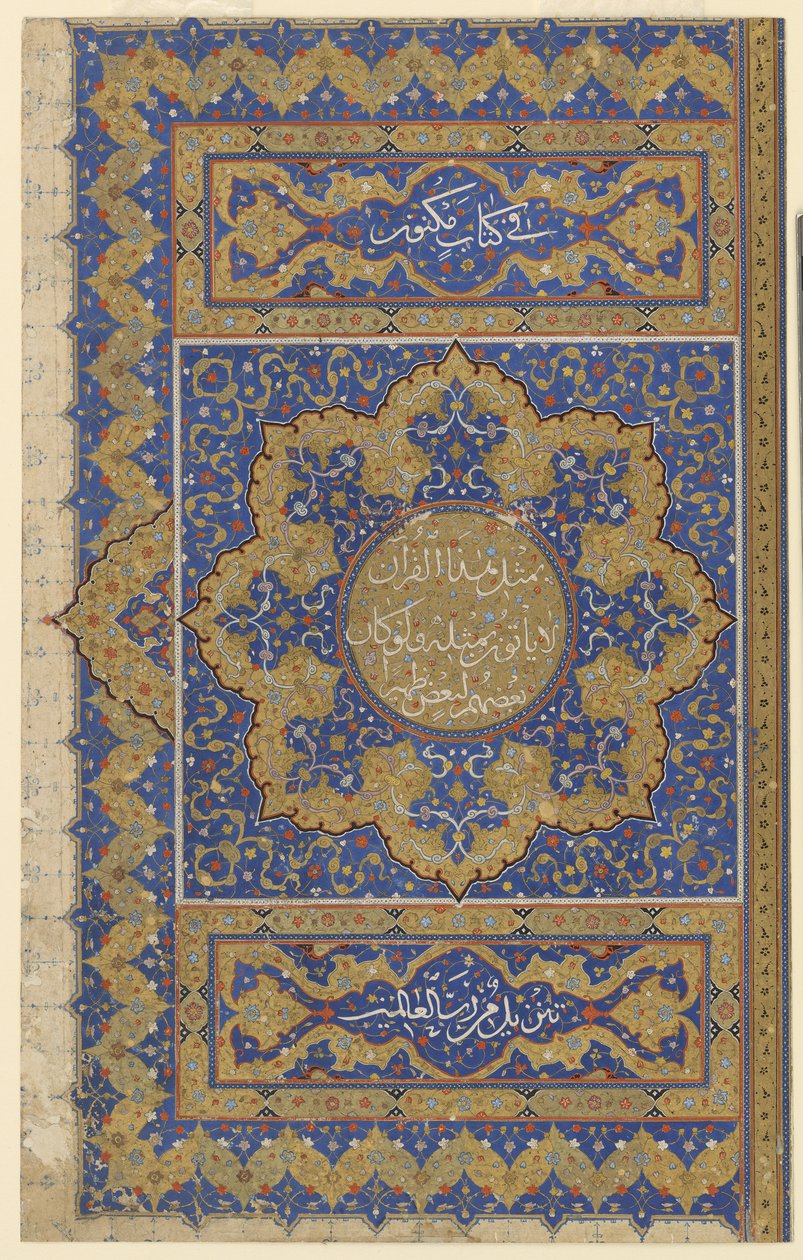 في كتاب مكنون
بمثل هذا القرآن
لا يأتون بمثله ولو كان
بعضهم لبعض ظهيرا
تنزيل من رب العالمين